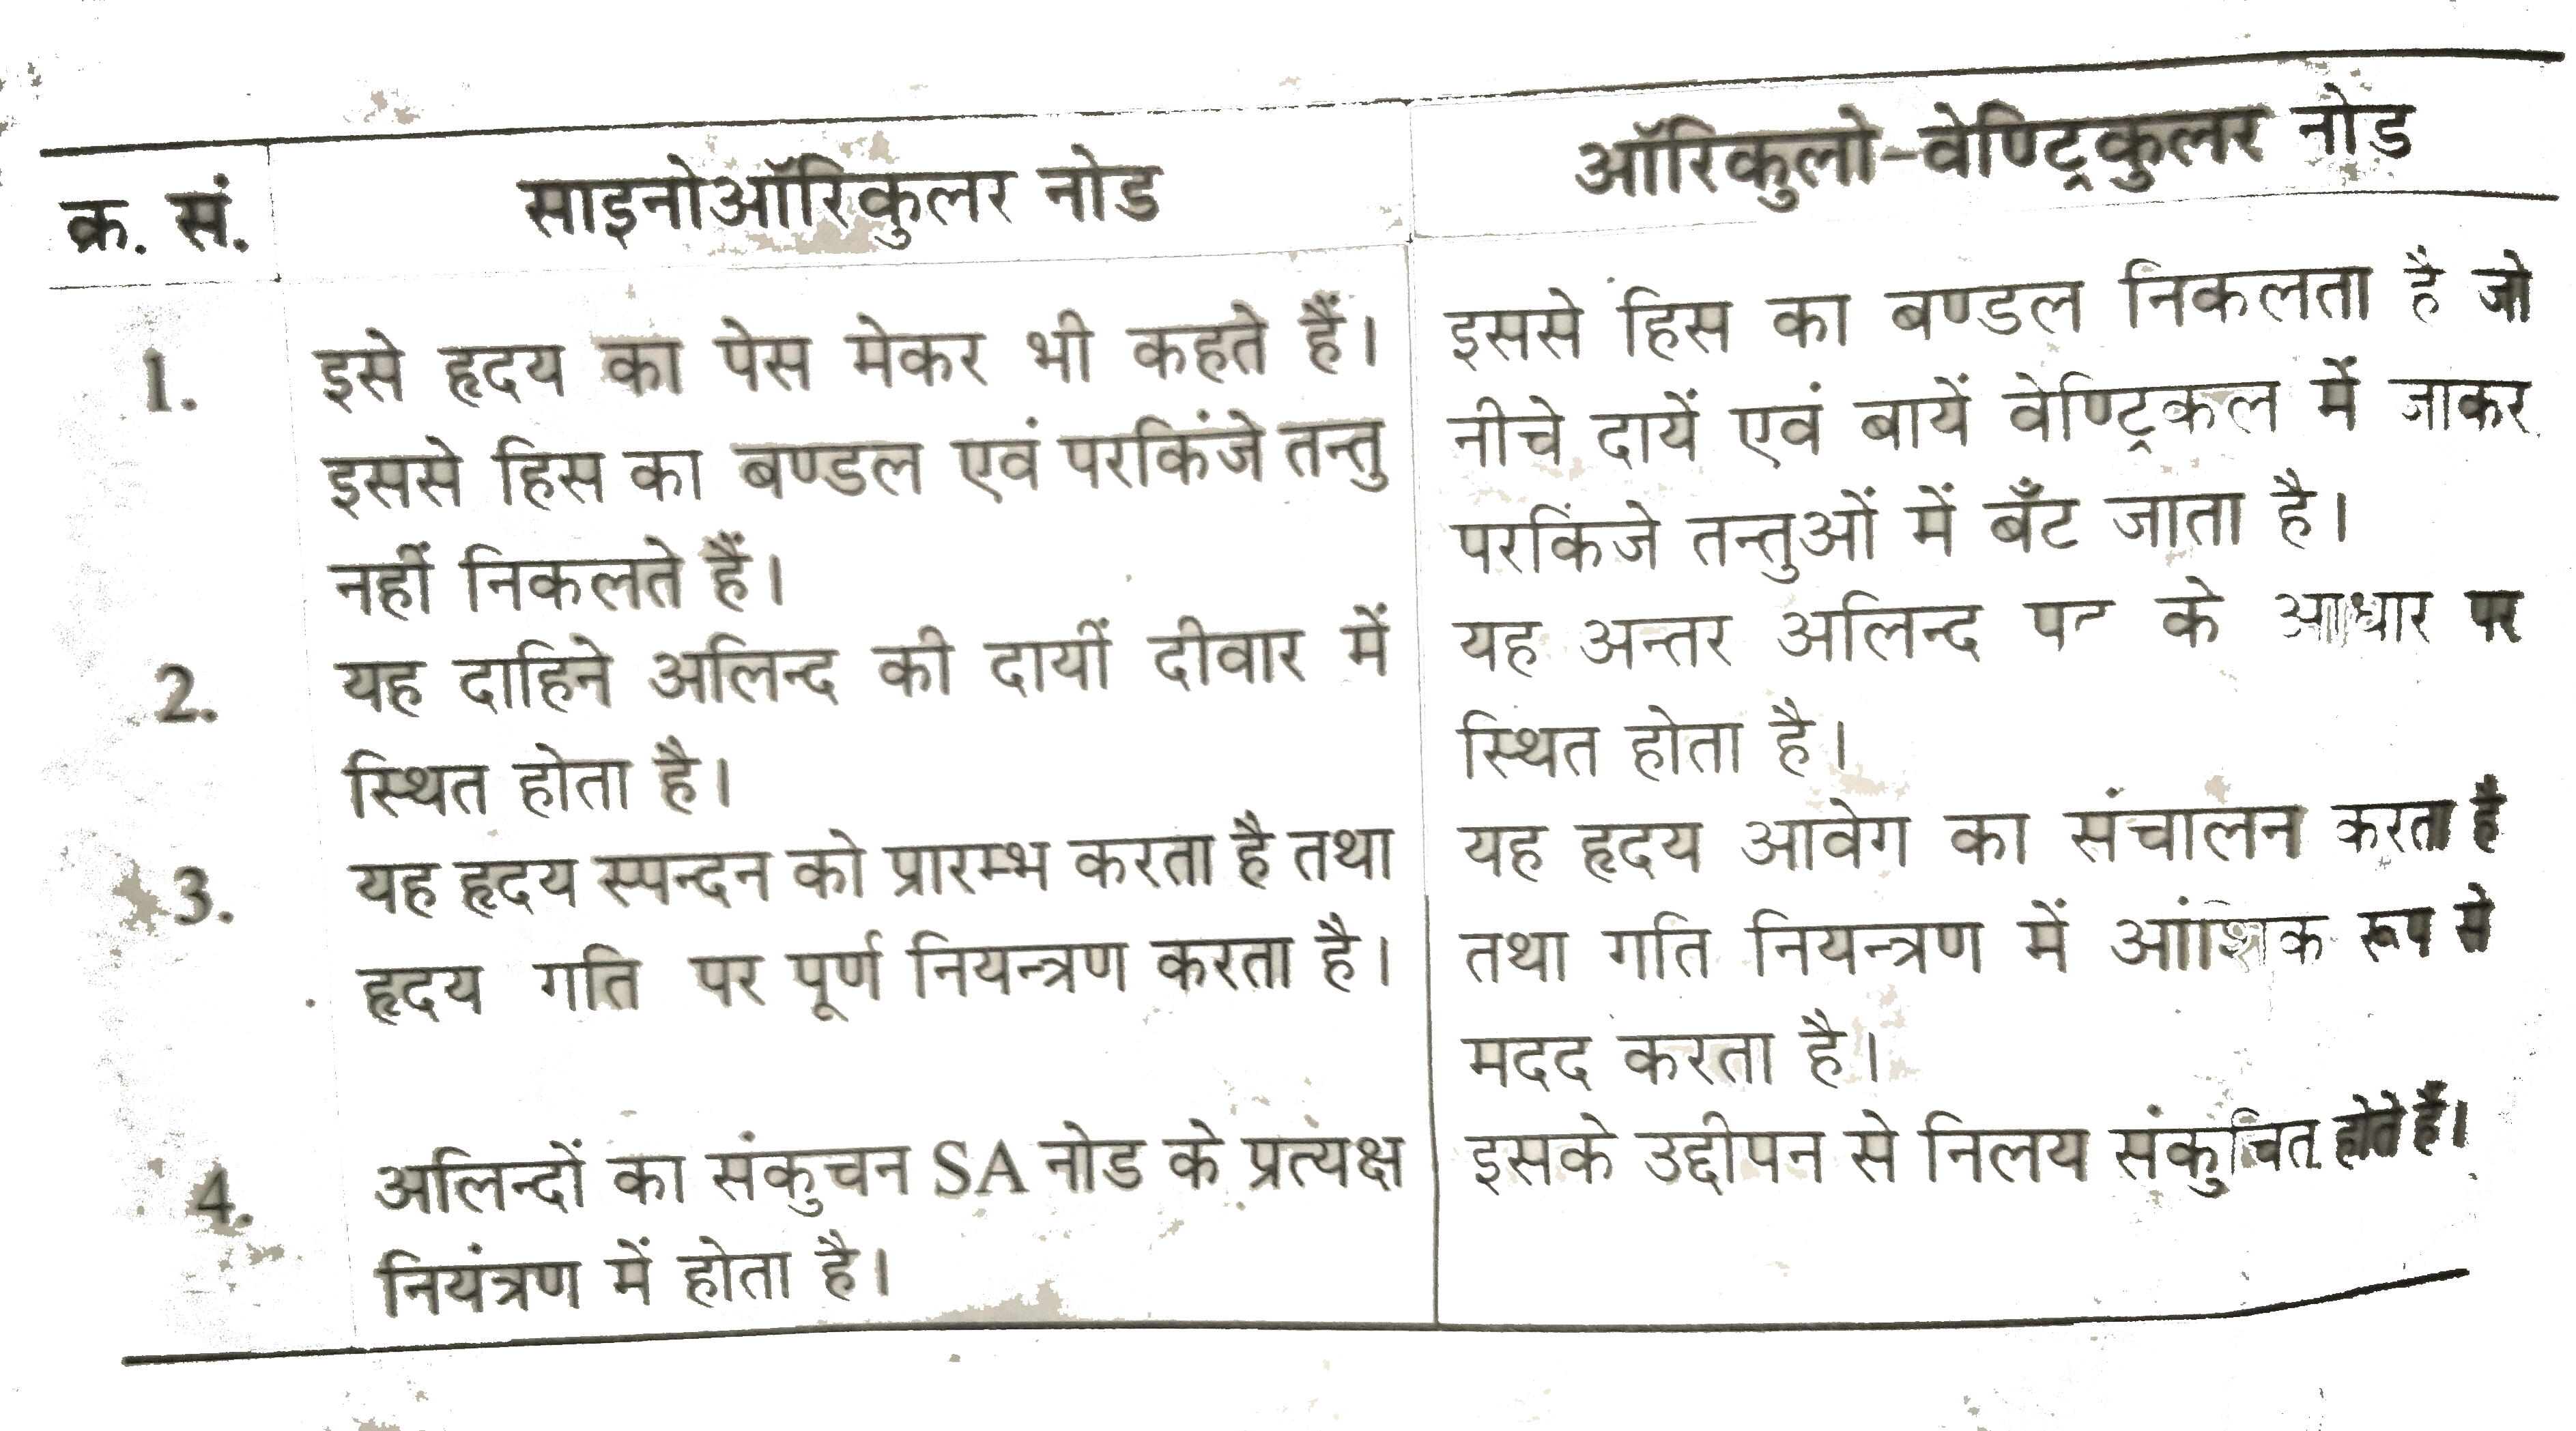 क्र. सं. साइनोऑरिकुलर नोड ऑरिकुलो-वेण्ट्रिकुलर नोड
1. इसे हृदय का पेस मेकर भी कहते हैं। इससे हिस का बण्डल निकलता है जो
इससे हिस का बण्डल एवं परकिंजे तन्तु नीचे दायें एवं बायें वेण्ट्रिकल में जाकर
नहीं निकलते हैं। परकिंजे तन्तुओं में बँट जाता है।
2. यह दाहिने अलिन्द की दायीं दीवार में यह अन्तर अलिन्द पट के आधार पर
स्थित होता है। स्थित होता है।
3. यह हृदय स्पन्दन को प्रारम्भ करता है तथा यह हृदय आवेग का संचालन करता है
हृदय गति पर पूर्ण नियन्त्रण करता है। तथा गति नियन्त्रण में आंशिक रूप से
मदद करता है।
4. अलिन्दों का संकुचन SA नोड के प्रत्यक्ष इसके उद्दीपन से निलय संकुचित होते हैं।
नियंत्रण में होता है।